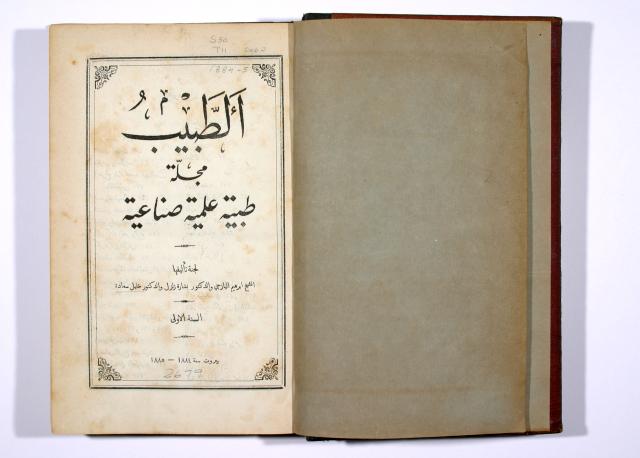 S30
T11
1884-5
أَلطَّبِيبُ
مجلّة
طبية علمية صناعية
لجنة تأليفها
الشيخ ابرهيم اليازجي والدكتور بشارة زلزل والدكتور خليل سعادة
السنة الاولى
بيروت سنة ١٨٨٤ – ١٨٨٥
2679